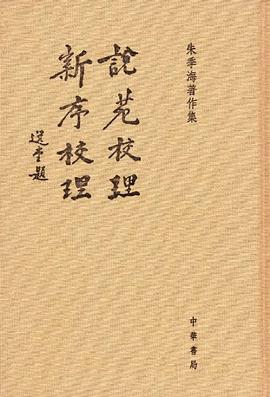 朱季海著作集
說苑校理
新序校理
选堂题
中華書局